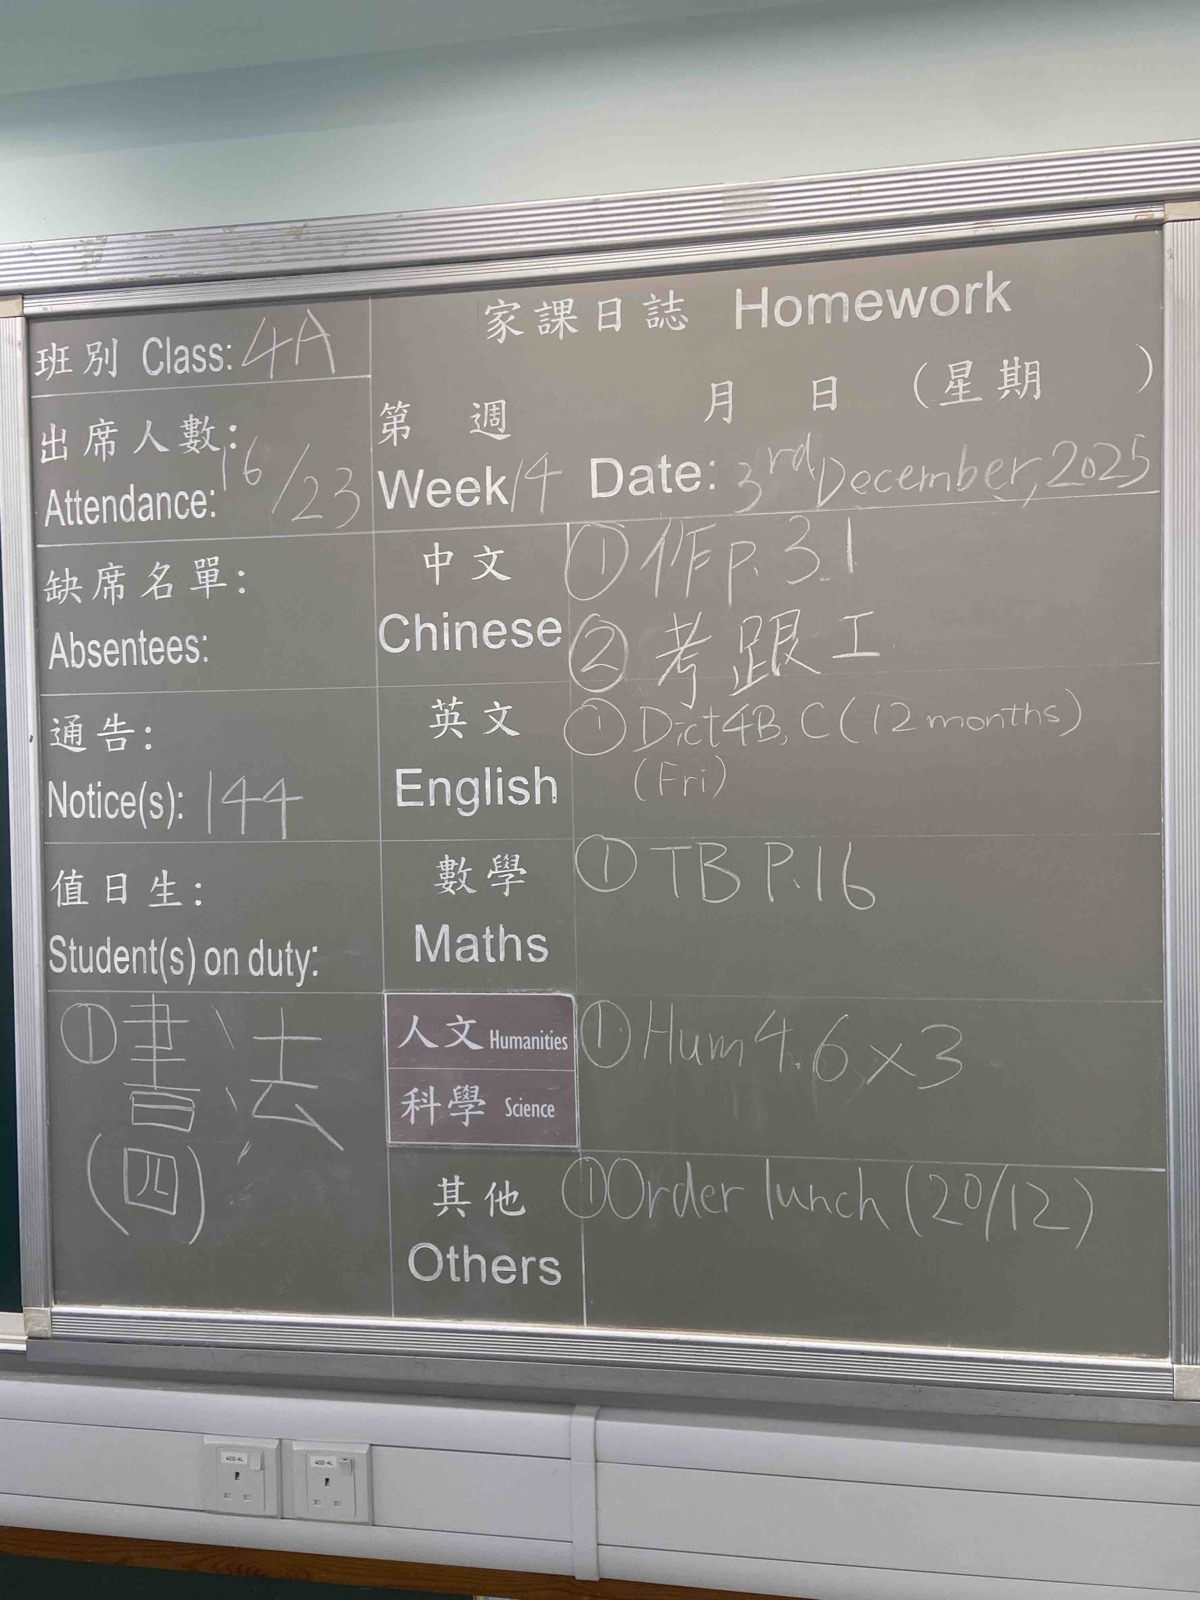 家課日誌 Homework
班別 Class: 4A
月 日 (星期 )
第 週
Week 14 Date: 3rd December, 2025
出席人數:
Attendance: 16/23
缺席名單:
Absentees:
通告:
Notice(s): 144
值日生:
Student(s) on duty:
① 書法
(四)
中文
Chinese
① 作 p. 3.1
② 考跟工
英文
English
① Dict 4B, C (12 months)
(Fri)
數學
Maths
① TB P.16
人文 Humanities
科學 Science
① Hum 4.6 x 3
其他
Others
① Order lunch (20/12)